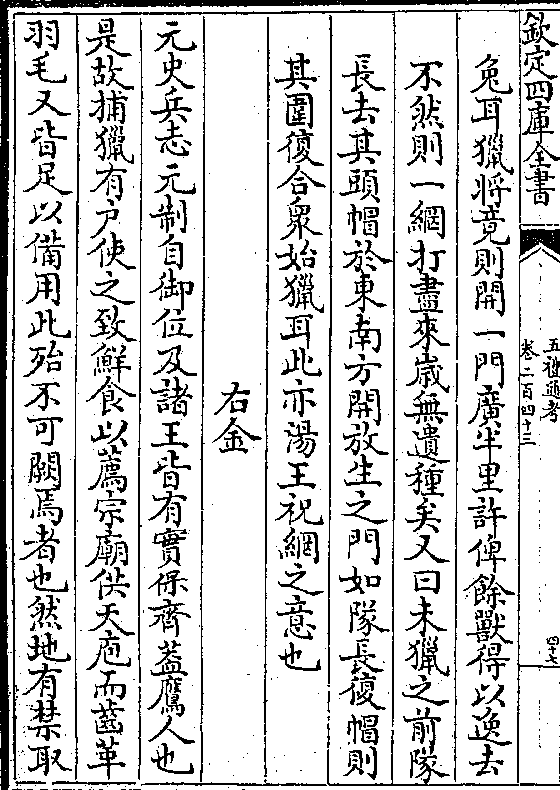 欽定四庫全書
五禮通考
卷二百四十三
四十七
兔耳獵將竟則開一門廣半里許俾餘獸得以逸去
不然則一網打盡來歲無遺種矣又曰未獵之前隊
長去其頭帽於東南方開放生之門如隊長復帽則
其圍復合衆始獵耳此亦湯王祝網之意也
右金
元史兵志元制自御位及諸王皆有實保齊葢鷹人也
是故捕獵有户使之致鮮食以薦宗廟供天庖而齒革
羽毛又皆足以備用此殆不可闕焉者也然地有禁取